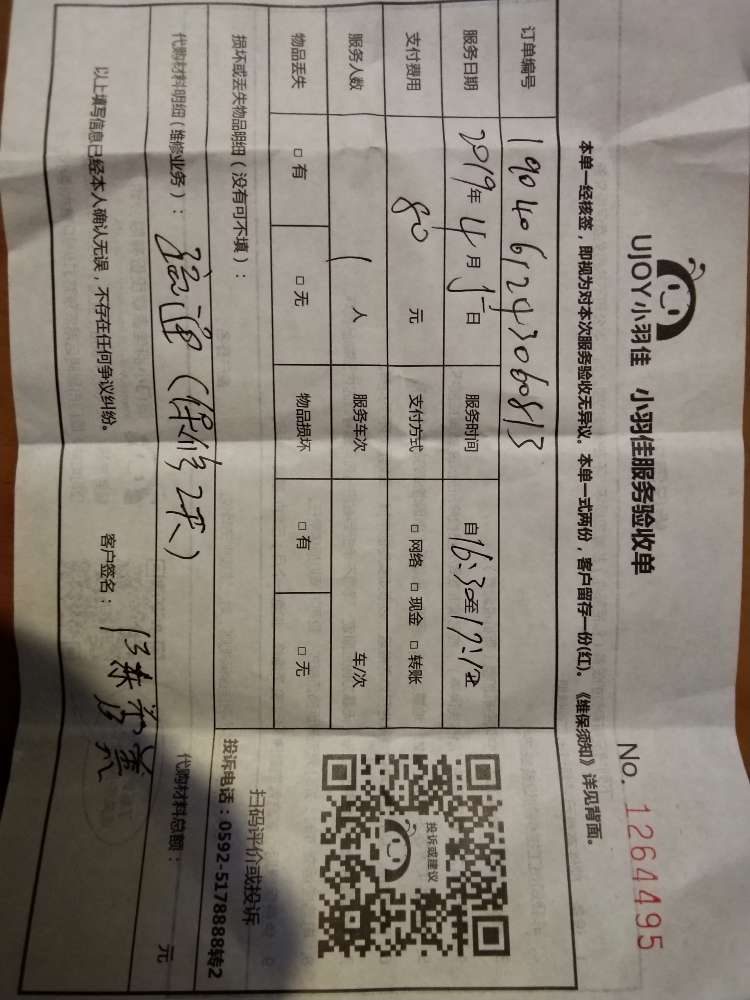 UJOY小羽佳 小羽佳服务验收单
No. 1264495
本单一经核签，即视为对本次服务验收无异议。本单一式两份，客户留存一份(红)。《维保须知》详见背面。
订单编号 1904061243060813
服务日期 2019年4月5日 服务时间 自16:30至17:10
支付费用 80元 支付方式 □网络 □现金 □转账
服务人数 1人 服务车次 车/次
物品丢失 □有 □无 物品损坏 □有 □无
损坏或丢失物品明细（没有可不填）：
代购材料明细（维修业务）： 疏通（保修2天）
代购材料总额： 元
以上填写信息已经本人确认无误，不存在任何争议纠纷。 客户签名：
投诉或建议
扫码评价或投诉
投诉电话：0592-5178888转2